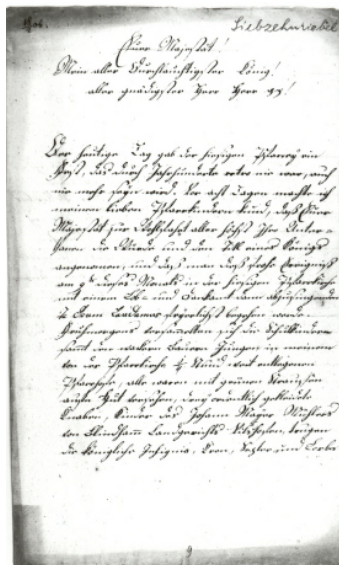 1806.
Siebzehnrübel
Euer Majestät!
Mein aller Durchlauchtigster König!
aller gnädigster Herr Herr
Der heutige Tag gab der hiesigen Pfarrey ein
Fest, das durch Jahrhunderte nie war, auch
nie mehr seyn wird. Vor acht Tagen machte ich
meinen lieben Pfarrkindern kund, daß Euer
Majestät zur Wohlfahrt aller höchst Ihre Unter-
thanen die Würde und den Titl eines Königs
angenommen, und daß man dieß frohe Ereigniß
am dieses Monats in der hiesigen Pfarrkirche
mit einem Lob- und Dankamt dann abzusingenden
Te Deum Laudamus feyerlichst begehen werde.
Frühmorgens versammelten sich die Schulkinder
sammt den Bauern Jungen in meinem
von der Pfarrkirche ½ Stund weit entlegenen
Pfarrhofe, alle waren mit grünen Sträuschen
auf dem Hut versehen, drey ordentlich gekleidte
Knaben, Kinder des Johann Mayr
von Landgerichts Vilshofen, trugen
die königliche Insignia, Kron, Zepter und